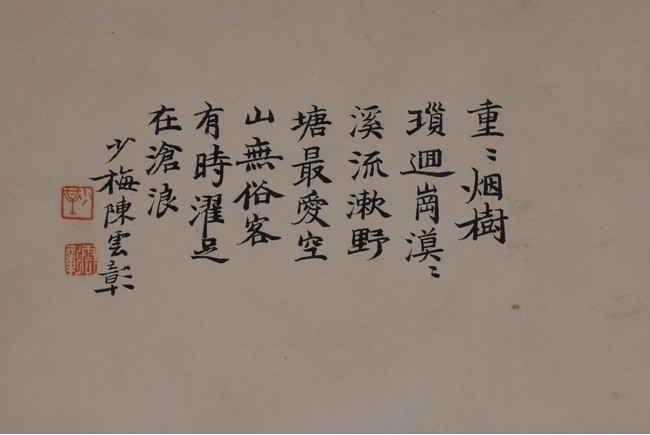 重〻烟樹
瑣迴崗漠〻
溪流漱野
塘最愛空
山無俗客
有時濯足
在滄浪
少梅陳雲彰